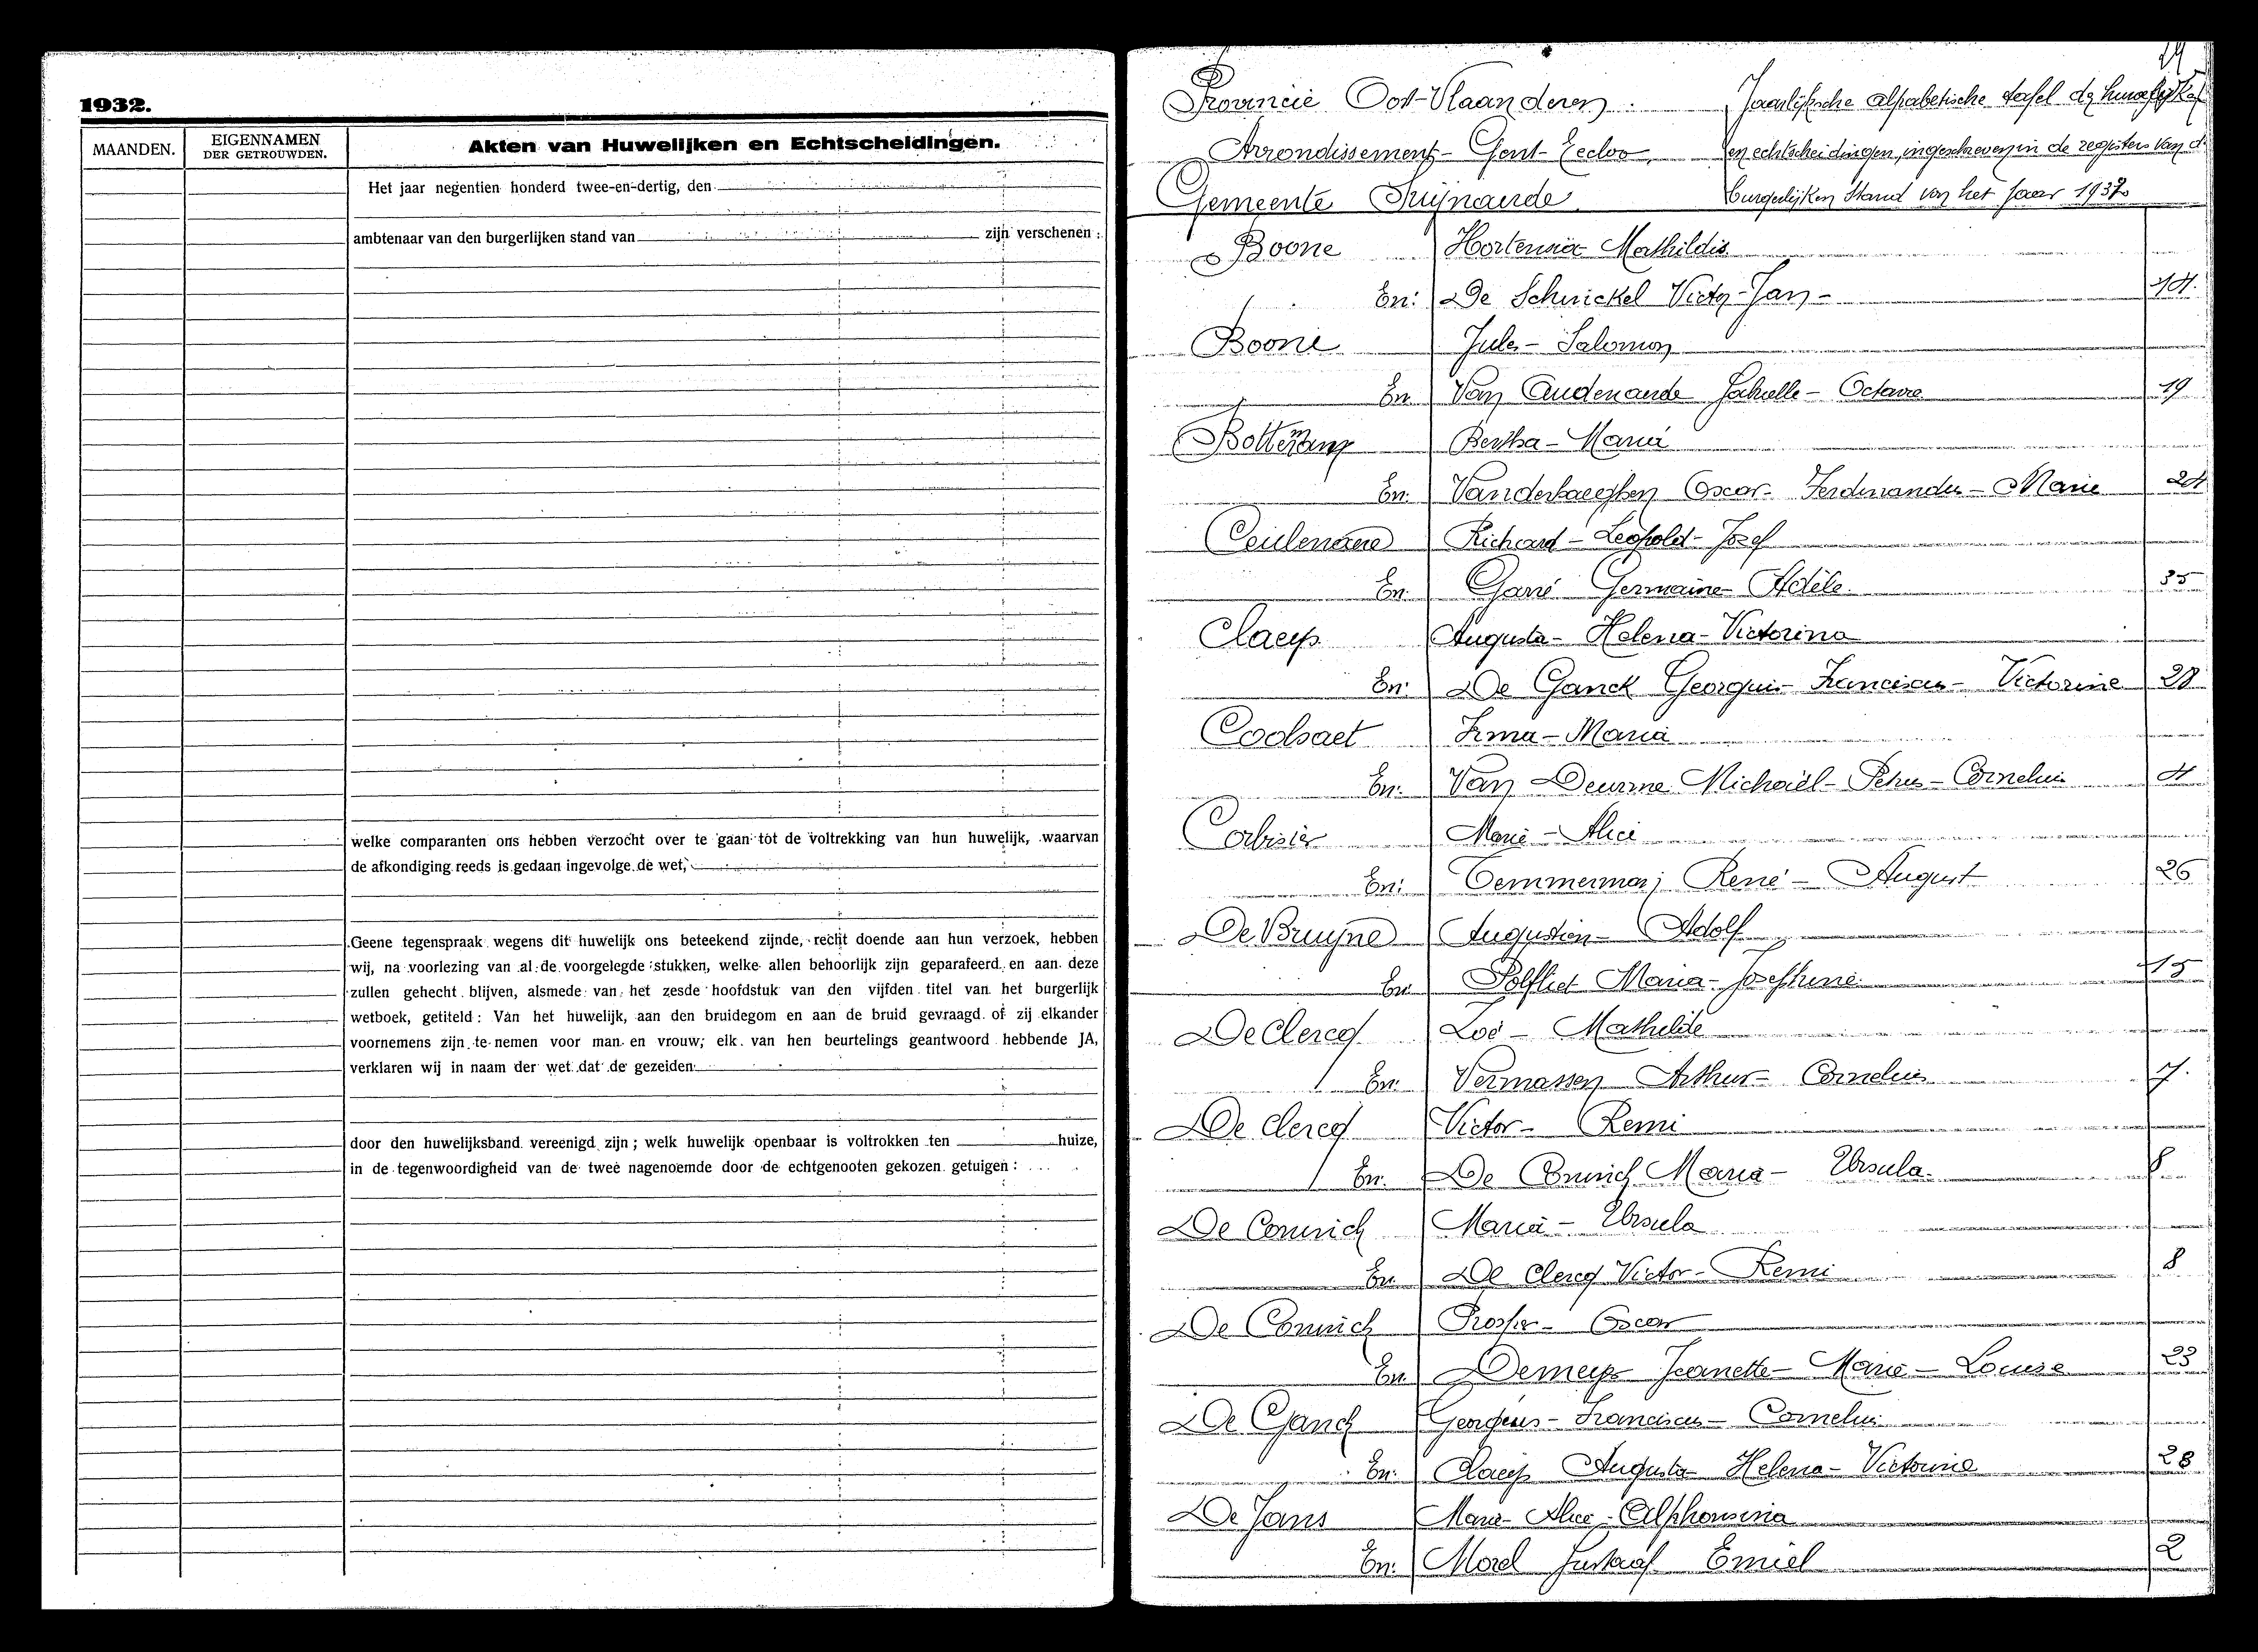 1932.
MAANDEN.
EIGENNAMEN
DER GETROUWDEN.
Akten van Huwelijken en Echtscheidingen.
Het jaar negentien honderd twee-en-dertig, den
ambtenaar van den burgerlijken stand van zijn verschenen :
welke comparanten ons hebben verzocht over te gaan tot de voltrekking van hun huwelijk, waarvan
de afkondiging reeds is gedaan ingevolge de wet,
Geene tegenspraak wegens dit huwelijk ons beteekend zijnde, recht doende aan hun verzoek, hebben
wij, na voorlezing van al de voorgelegde stukken, welke allen behoorlijk zijn geparafeerd en aan deze
zullen gehecht blijven, alsmede van het zesde hoofdstuk van den vijfden titel van het burgerlijk
wetboek, getiteld : Van het huwelijk, aan den bruidegom en aan de bruid gevraagd of zij elkander
voornemens zijn te nemen voor man en vrouw; elk van hen beurtelings geantwoord hebbende JA,
verklaren wij in naam der wet dat de gezeiden
door den huwelijksband vereenigd zijn ; welk huwelijk openbaar is voltrokken ten huize,
in de tegenwoordigheid van de twee nagenoemde door de echtgenooten gekozen getuigen :
Provincie Oost-Vlaanderen. Jaarlijksche alfabetische tafel der
Arrondissement - Gent-Eecloo en echtscheidingen, ingeschreven in de registers van d
Gemeente burgerlijken Stand van het Jaar 1932
Boone Hortensia Mathildis
En: De Schuickel Victor-Jan - 14.
Boone Jules - Salomon
En Van Audenaerde - Octavie 19
Bertha - Maria
En: Vanderhaeghen Oscar - Ferdinandus - Marie 24
Ceulenaere Richard - Leopold - Jozef
En: Garré Germaine - Adèle 35
Claeys Augusta - Helena - Victorina
En: De Ganck Georguis - Franciscus - Victorine 28
Coolsaet Irma - Maria
En: Van Deurme Michaël - Petrus - Cornelius 4
Corbisier Marie - Alice
En: Temmerman René - August 26
De Bruyne Augustien - Adolf
En Polfliet Maria - Josephine 15
De Clercq Zoé - Mathilde
En: Vermassen Arthur - Cornelius 7.
De Clercq Victor - Remi
En: De Coninck Maria - Ursula 8
De Coninck Maria - Ursula
En. De Clercq Victor - Remi 8
De Coninck Prosper - Oscar
En: Demeyer Jeanette - Marie - Louise 23
De Ganck Georgius - Franciscus - Cornelius
En: Claeys Augusta Helena - Victorine 28
De Jans Marie - Alice - Alphonsina
En: Morel Gustaaf Emiel 2